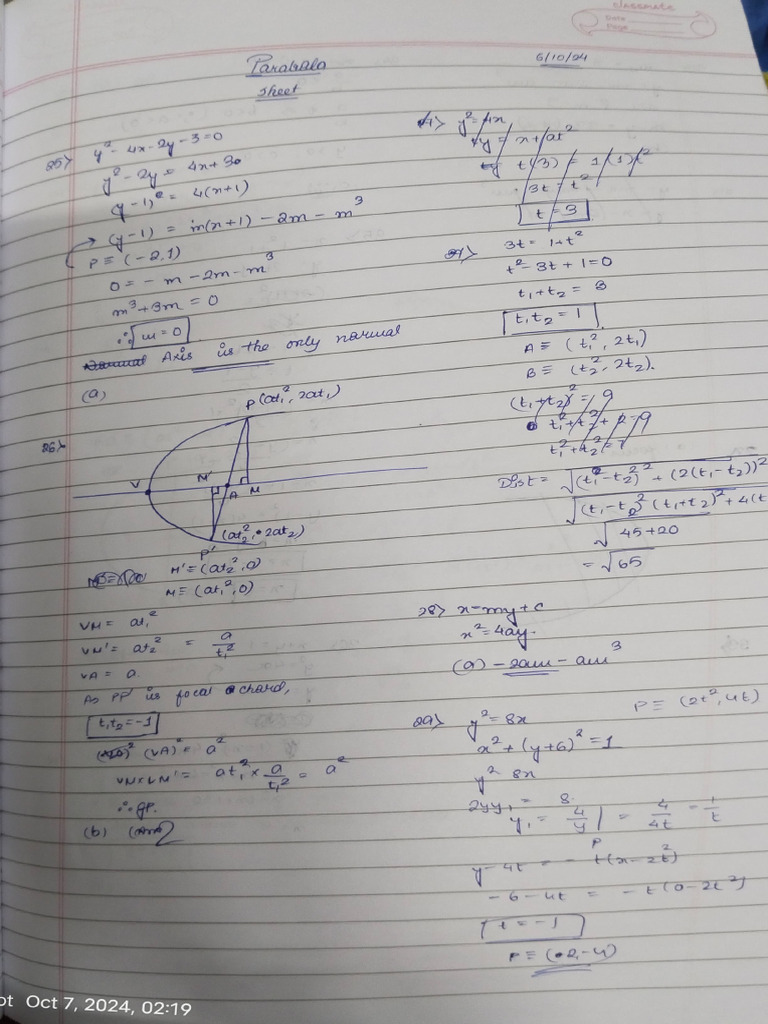 classmate
Date
Page
Parabala
Sheet
6/10/24
25> y² - 4x - 2y - 3 = 0
y² - 2y = 4x + 3
(y-1)² = 4(x+1)
(y-1) = m(x+1) - 2m - m³
P ≡ (-2,1)
0 = - m - 2m - m³
m³ + 3m = 0
∴ m = 0
Axis is the only normal
(a)
26>
P(at₁², 2at₁)
V
M'
A
M
(at₂², 2at₂)
P'
M' ≡ (at₂², 0)
M ≡ (at₁², 0)
VM = at₁²
VM' = at₂² = a/t₁²
VA = a
As PP' is focal chord,
t₁t₂ = -1
(VA)² = a²
VM × VM' = at₁² × a/t₁² = a²
∴ gp.
(b)
y² = 4x
y = x + at²
t(3) = 1 + (1)t²
3t = t²
t = 3
27> 3t = 1 + t²
t² - 3t + 1 = 0
t₁ + t₂ = 3
t₁t₂ = 1
A ≡ (t₁², 2t₁)
B ≡ (t₂², 2t₂).
(t₁+t₂)² = 9
t₁² + t₂² + 2 = 9
t₁² + t₂² = 7
Dist = √(t₁² - t₂²)² + (2(t₁-t₂))²
√(t₁-t₂)² (t₁+t₂)² + 4(t
√45+20
= √65
28> x = my + c
x² = 4ay.
(a) - 2am - am³
29> y² = 8x
P ≡ (2t², 4t)
x² + (y+6)² = 1
y² 8x
2yy₁ = 8
y₁ = 4/y |P = 4/4t = 1/t
y - 4t = - t(x - 2t²)
- 6 - 4t = - t(0 - 2t²)
t = -1
P ≡ (2, -4)
ot Oct 7, 2024, 02:19